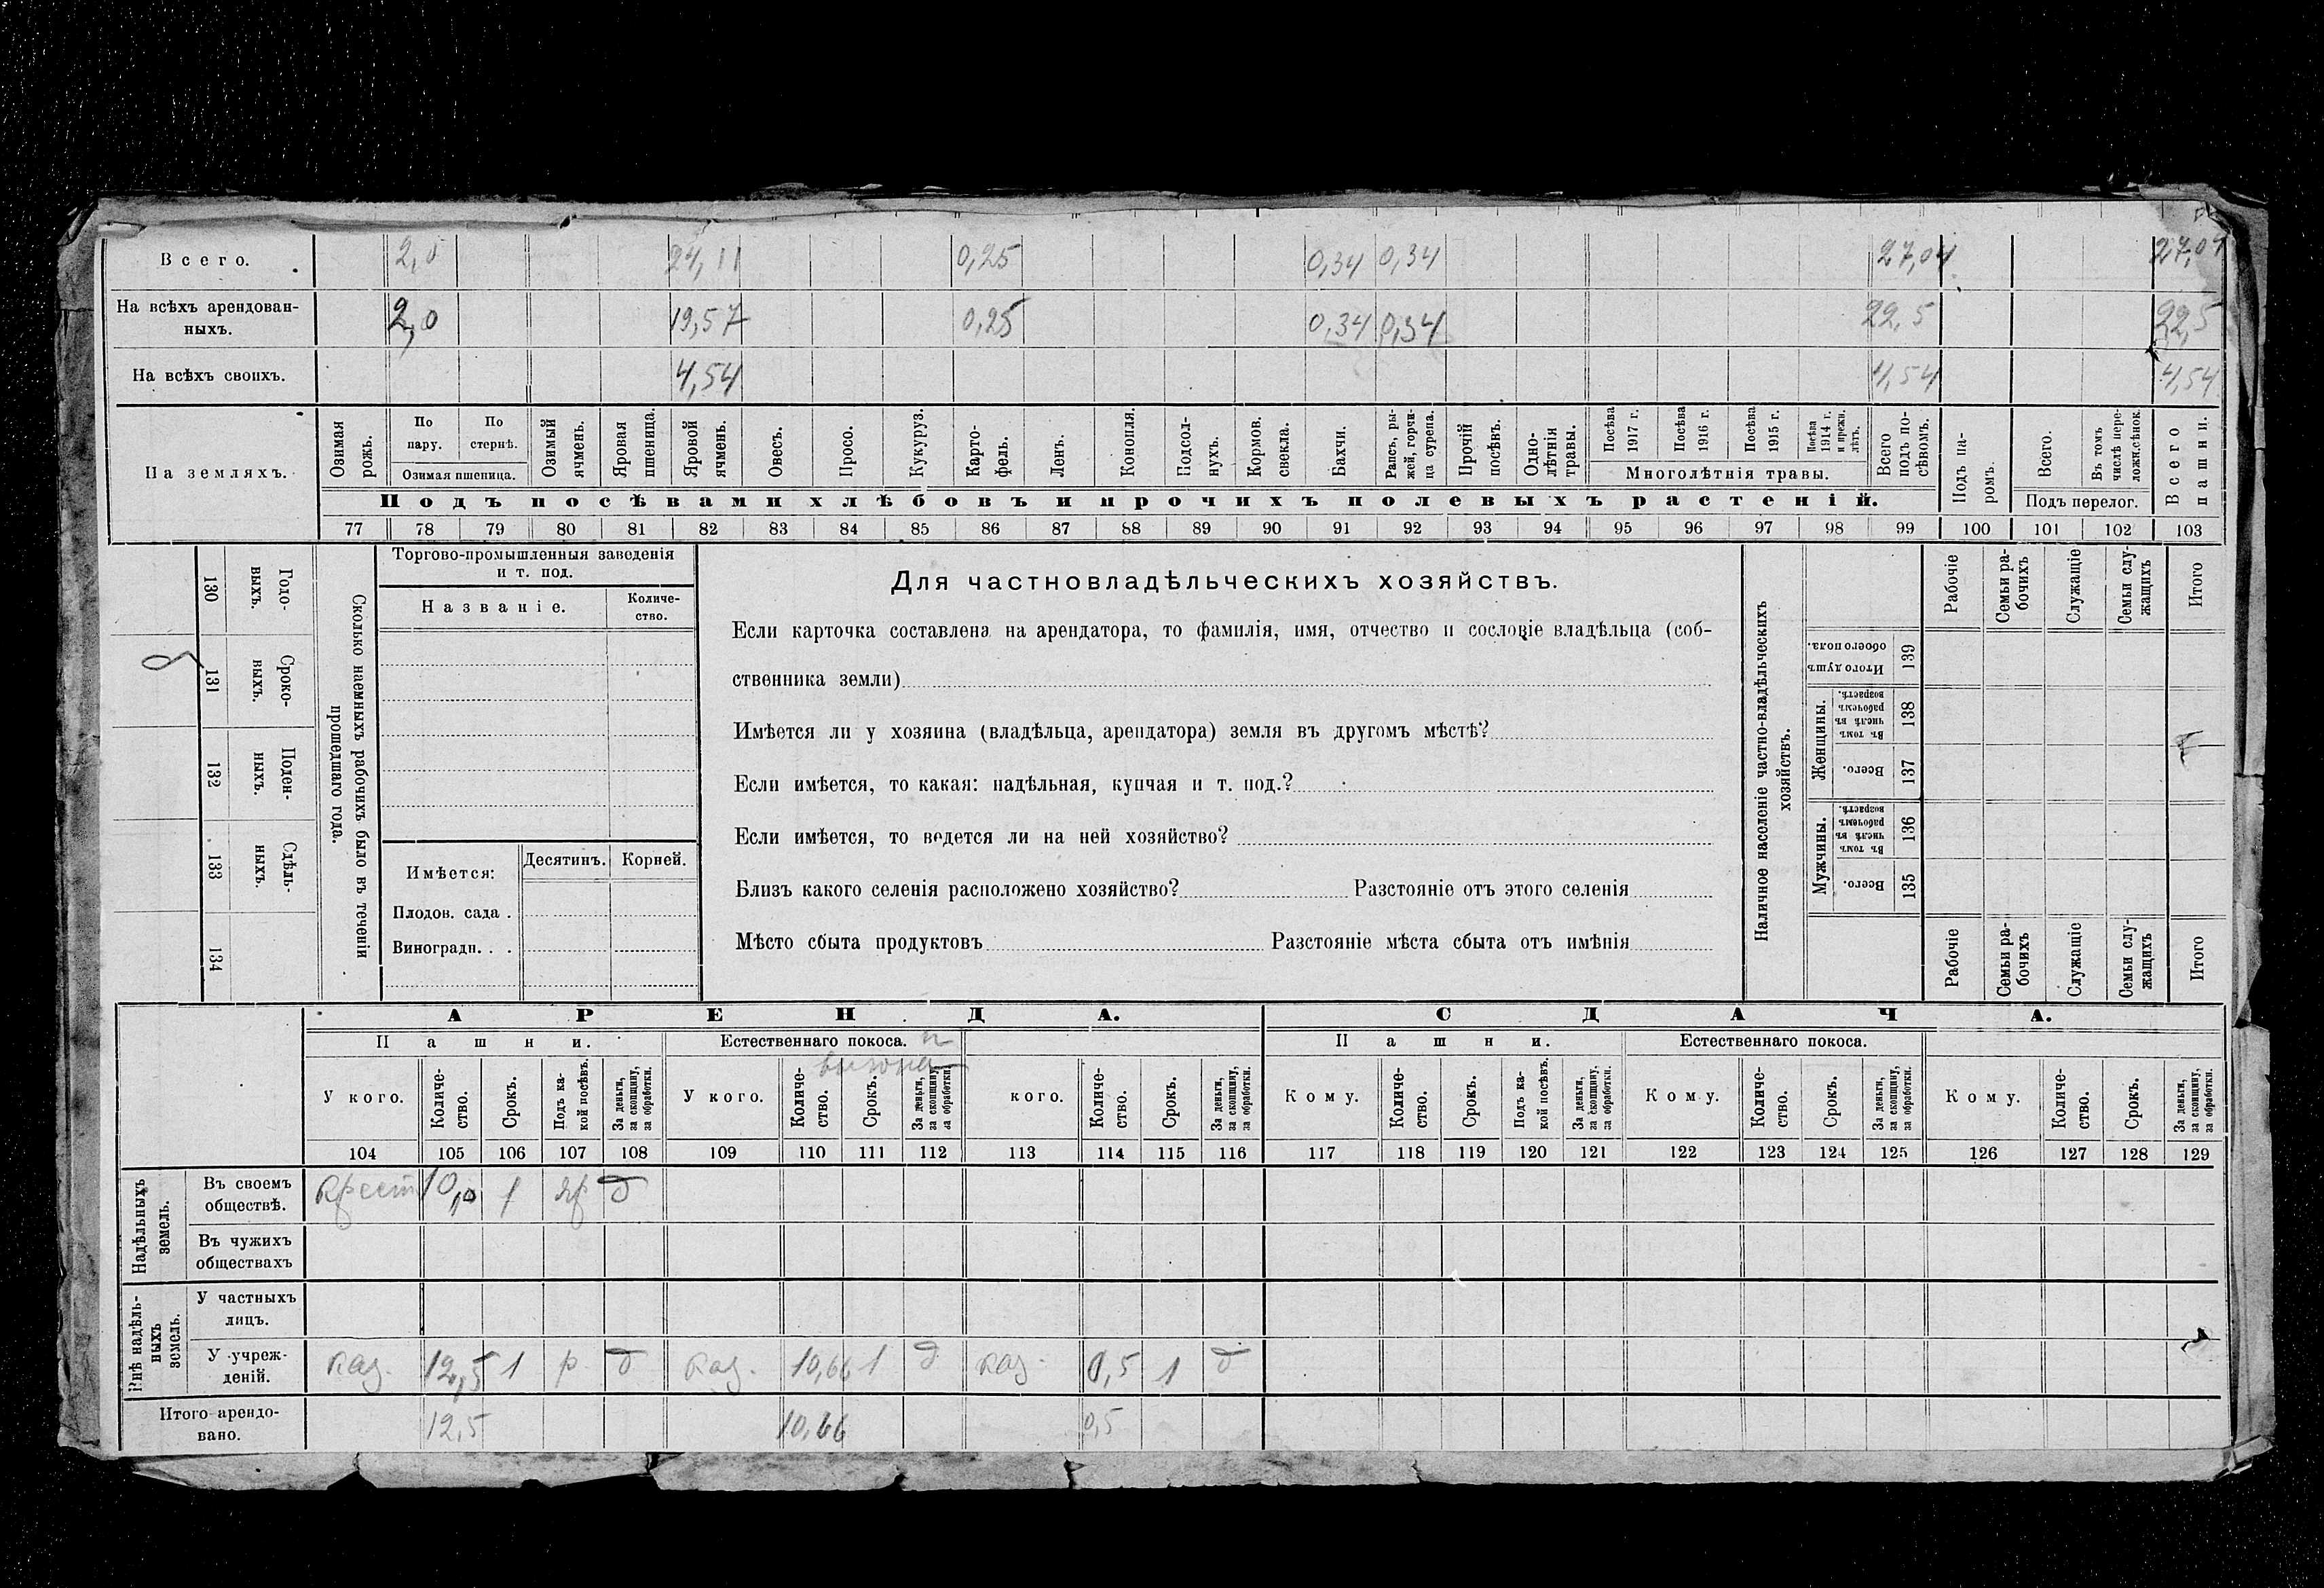 Всего. 2,0 24,11 0,25 0,34 0,34 27,04 27,04
На всѣхъ арендован-
ныхъ. 2,0 19,57 0,25 0,34 0,34 22,5 22,5
На всѣхъ своихъ. 4,54 4,54 4,54
На земляхъ.
Озимая рожь.
По пару.
По стернѣ.
Озимая пшеница.
Озимый ячмень.
Яровая пшеница.
Яровой ячмень.
Овесъ.
Просо.
Кукуруз.
Карто-
фель.
Ленъ.
Конопля.
Подсол-
нухъ.
Кормов. свекла.
Бахчи.
Рапсъ, ры-
жей, горчи-
ца сурепа.
Прочій посѣвъ.
Одно-
лѣтнія травы.
Посѣва 1917 г.
Посѣва 1916 г.
Посѣва 1915 г.
Посѣва 1914 г. и прежн. лѣтъ.
Многолѣтнія травы.
Всего подъ по-
сѣвомъ.
Подъ па-
ромъ.
Всего.
Въ томъ числѣ пере-
ложн. сѣнок.
Подъ перелог.
Всего пашни.
Подъ посѣвами хлѣбовъ и прочихъ полевыхъ растеній.
77 78 79 80 81 82 83 84 85 86 87 88 89 90 91 92 93 94 95 96 97 98 99 100 101 102 103
Сколько наемныхъ рабочихъ было въ теченіи
прошедшаго года.
Годо-
выхъ.
130
Сроко-
выхъ.
131
Поден-
ныхъ.
132
Сдѣль-
ныхъ.
133
134
Торгово-промышленныя заведенія
и т. под.
Названіе.
Количе-
ство.
Имѣется:
Десятинъ. Корней.
Плодов. сада .
Виноградн. . .
Для частновладѣльческихъ хозяйствъ.
Если карточка составлена на арендатора, то фамилія, имя, отчество и сословіе владѣльца (соб-
ственника земли)
Имѣется ли у хозяина (владѣльца, арендатора) земля въ другомъ мѣстѣ?
Если имѣется, то какая: надѣльная, купчая и т. под.?
Если имѣется, то ведется ли на ней хозяйство?
Близъ какого селенія расположено хозяйство? Разстояніе отъ этого селенія
Мѣсто сбыта продуктовъ Разстояніе мѣста сбыта отъ имѣнія
Наличное населеніе частно-владѣльческихъ
хозяйствъ.
Рабочіе
Семьи ра-
бочихъ
Служащіе
Семьи слу-
жащихъ
Итого
Итого душъ обоего пола.
139
Женщины.
Въ томъ числѣ въ рабочемъ возрастѣ.
138
Всего.
137
Мужчины.
Въ томъ числѣ въ рабочемъ возрастѣ.
136
Всего.
135
Рабочіе
Семьи ра-
бочихъ
Служащіе
Семьи слу-
жащихъ
Итого
АРЕНДА. СДАЧА.
Пашни. Естественнаго покоса. и Пашни. Естественнаго покоса.
выгона
У кого. Количе-
ство. Срокъ. Подъ ка-
кой посѣвъ. За деньги, за скопщину, за обработки.
У кого. Количе-
ство. Срокъ. За деньги, за скопщину, за обработки.
кого. Количе-
ство. Срокъ. За деньги, за скопщину, за обработки.
Кому. Количе-
ство. Срокъ. Подъ ка-
кой посѣвъ. За деньги, за скопщину, за обработки.
Кому. Количе-
ство. Срокъ. За деньги, за скопщину, за обработки.
Кому. Количе-
ство. Срокъ. За деньги, за скопщину, за обработки.
104 105 106 107 108 109 110 111 112 113 114 115 116 117 118 119 120 121 122 123 124 125 126 127 128 129
Надѣльныхъ
земель.
Въ своемъ
обществѣ. Крест 10,0 1 яр д
Въ чужихъ
обществахъ
Внѣ надѣль-
ныхъ
земель.
У частныхъ
лицъ.
У учреж-
деній. Каз. 12,5 1 р д Каз. 10,66 1 д Каз. 0,5 1 д
Итого арендо-
вано. 12,5 10,66 0,5